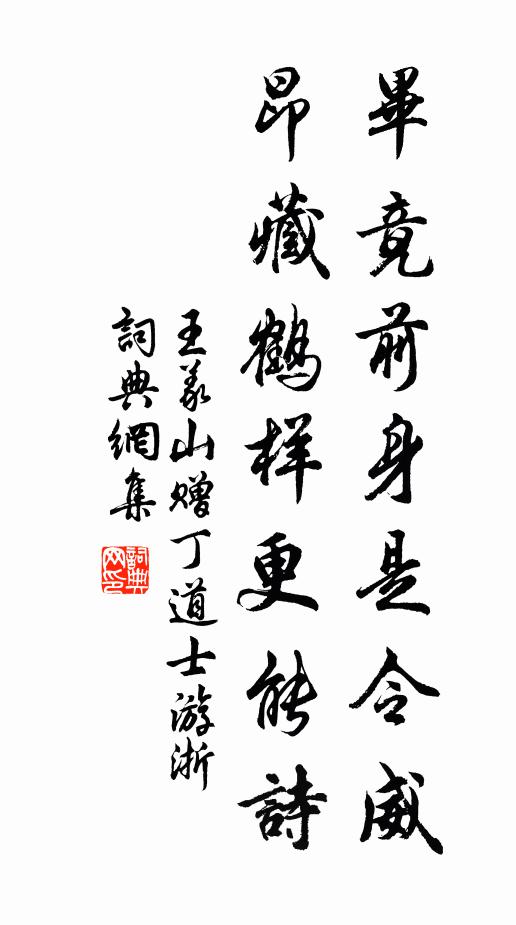 畢竟前身是令威
昂藏鶴样更能詩
王义山贈丁道士游浙
詞典網集
詞典网印